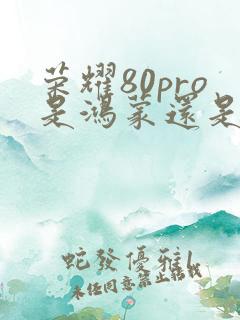 荣耀80pro
是鸿蒙還是
蛇發優雅l
未经同意禁止转载